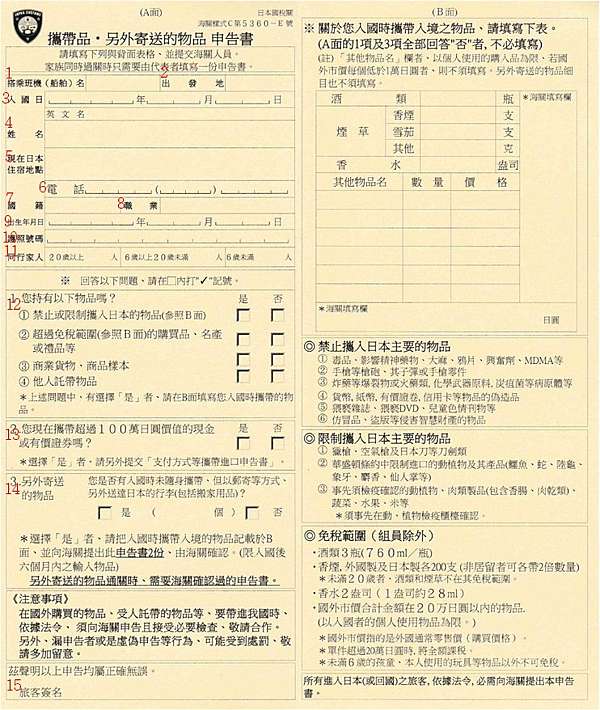 (A面)
日本國稅關
海關樣式C第5360-E號
攜帶品·另外寄送的物品 申告書
請填寫下列與背面表格、並提交海關人員。
家族同時過關時只需要由代表者填寫一份申告書。
1 搭乘班機(船舶)名 2 出發地
3 入國日 年 月 日
英文名
4 姓名
5 現在日本
住宿地點
6 電話 ( ) ( )
7 國籍 8 職業
9 出生年月日 年 月 日
10 護照號碼
11 同行家人 20歲以上 人 6歲以上20歲未滿 人 6歲未滿 人
※ 回答以下問題、請在□內打"✓"記號。
12 1.您持有以下物品嗎? 是 否
① 禁止或限制攜入日本的物品(參照B面)
② 超過免稅範圍(參照B面)的購買品、名產
或禮品等
③ 商業貨物、商品樣本
④ 他人託帶物品
*上述問題中,有選擇「是」者、請在B面填寫您入國時攜帶的物
品。
13 2.您現在攜帶超過100萬日圓價值的現金 是 否
或有價證券嗎?
*選擇「是」者、請另外提交「支付方式等攜帶進口申告書」。
14 3.另外寄送
的物品
您是否有入國時未隨身攜帶、但以郵寄等方式、
另外送達日本的行李(包括搬家用品)?
□ 是 ( 個) □ 否
*選擇「是」者、請把入國時攜帶入境的物品記載於B
面、並向海關提出此申告書2份、由海關確認。(限入國後
六個月內之輸入物品)
另外寄送的物品通關時、需要海關確認過的申告書。
《注意事項》
在國外購買的物品、受人託帶的物品等、要帶進我國時、
依據法令、須向海關申告且接受必要檢查、敬請合作。
另外、漏申告者或是虛偽申告等行為、可能受到處罰、敬
請多加留意。
茲聲明以上申告均屬正確無誤。
15 旅客簽名
(B面)
※ 關於您入國時攜帶入境之物品、請填寫下表。
(A面的1項及3項全部回答"否"者,不必填寫)
(註)「其他物品名」欄者、以個人使用的購入品為限、若國
外市價每個低於1萬日圓者、則不須填寫。另外寄送的物品細
目也不須填寫。
酒類 瓶 *海關填寫欄
煙草 香煙 支
雪茄 支
其他 克
香水 盎司
其他物品名 數量 價格
*海關填寫欄
日圓
◎ 禁止攜入日本主要的物品
① 毒品、影響精神藥物、大麻、鴉片、興奮劑、MDMA等
② 手槍等槍砲、其子彈或手槍零件
③ 炸藥等爆裂物或火藥類、化學武器原料、炭疽菌等病原體等
④ 貨幣,紙幣,有價證卷,信用卡等物品的偽造品
⑤ 猥褻雜誌、猥褻DVD、兒童色情刊物等
⑥ 仿冒品、盜版等侵害智慧財產的物品
◎ 限制攜入日本主要的物品
① 獵槍、空氣槍及日本刀等刀劍類
② 華盛頓條約中限制進口的動植物及其產品(鱷魚、蛇、陸龜、
象牙、麝香、仙人掌等)
③ 事先須檢疫確認的動植物、肉類製品(包含香腸、肉乾類)、
蔬菜、水果、米等
*須事先在動,植物檢疫櫃檯確認。
◎ 免稅範圍(組員除外)
·酒類3瓶(760ml/瓶)
·香煙,外國製及日本製各200支(非居留者可各帶2倍數量)
*未滿20歲者、酒類和煙草不在其免稅範圍。
·香水2盎司(1盎司約28ml)
·國外市價合計金額在20万日圓以內的物品.
(以入國者的個人使用物品為限。)
*國外市價指的是外國通常零售價(購買價格)。
*單件超過20萬日圓時,將全額課稅。
*未滿6歲的孩童、本人使用的玩具等物品以外不可免稅。
所有進入日本(或回國)之旅客,依據法令,必需向海關提出本申告
書。